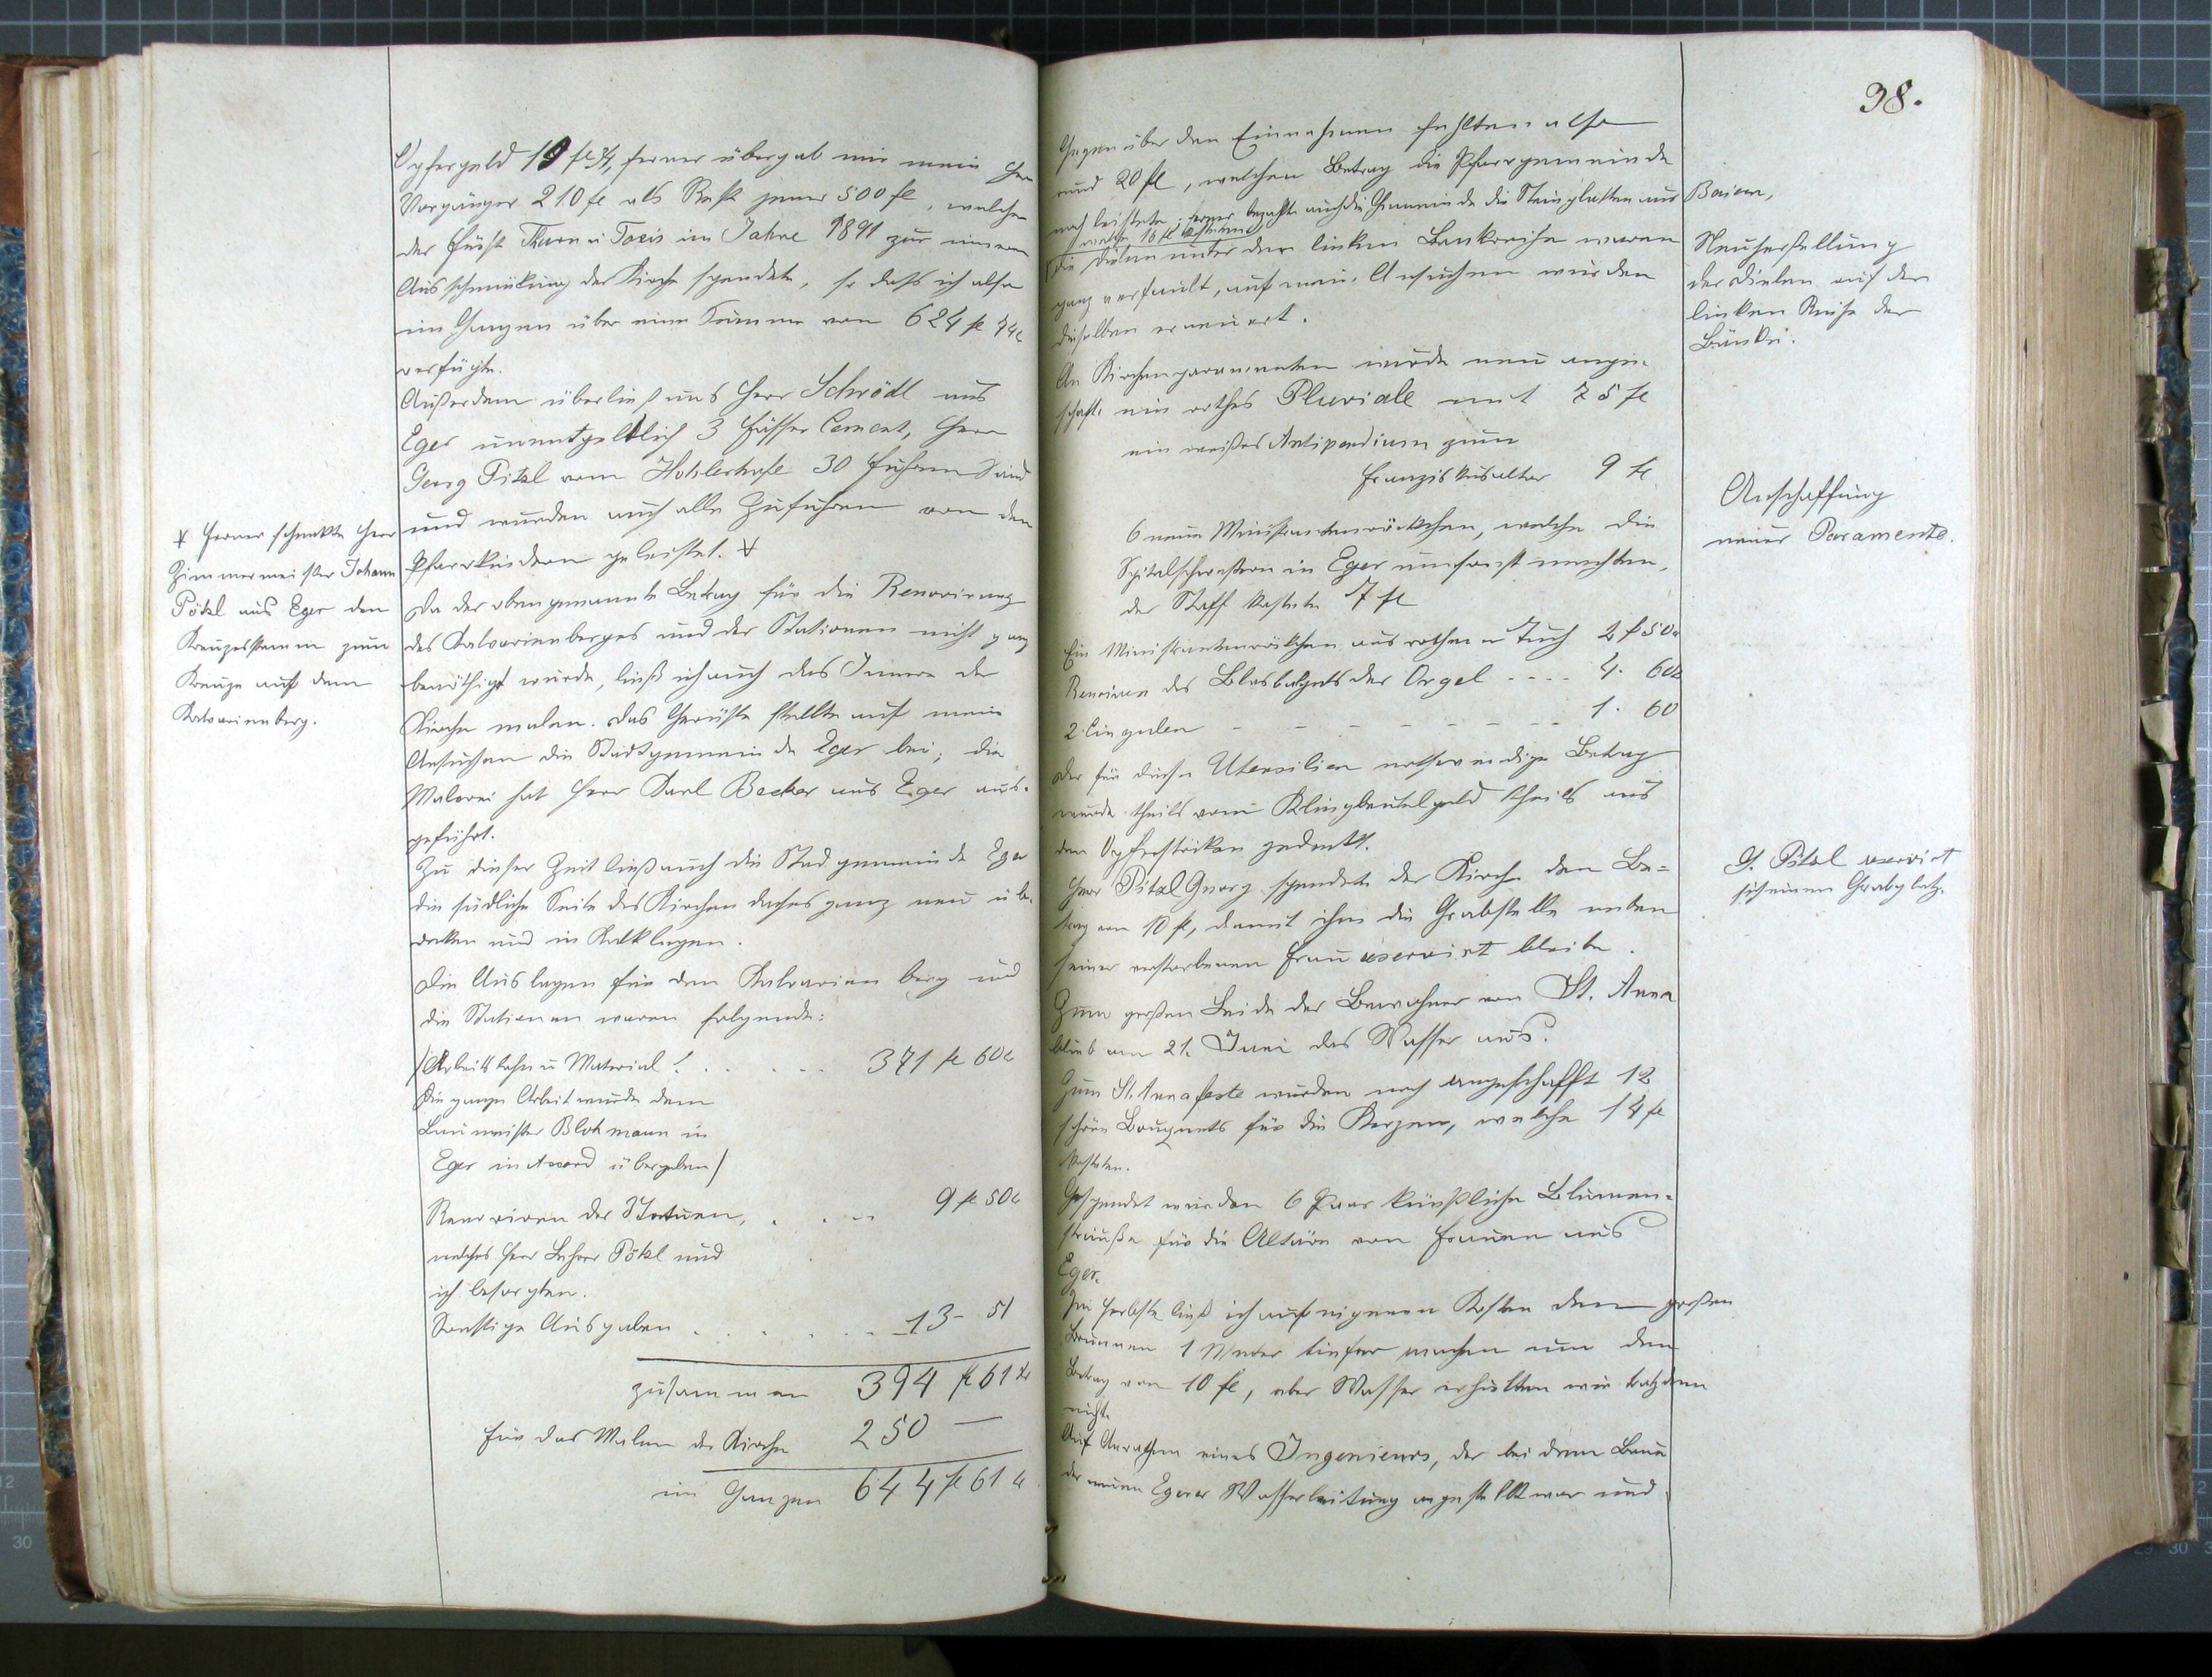 Opfergeld 19 fl 34, ferner übergab mir mein Herr
Vorgänger 210 fl als Rest jener 500 fl, welchen
der Fürst Thurn u Taxis im Jahre 1891 zur inneren
Ausschmükung der Kirche spendete, so daß ich also
im Ganzen über eine Summe von 624 fl 74 x
verfügte.
Außerdem überließ uns Herr Schrödl aus
Eger unentgeltlich 3 Fässer Cement, Herr
Georg Pitzl vom Fuhren Sand
und wurden auch alle Zufuhren von den
Pfarrkindern geleistet. +
+ Ferner schenkte Herr
Zimmermeister Johann
Pökl aus Eger den
Kreuzesstamm zum
Kreuze auf dem
Kalvarienberg.
Da der obengenannte Betrag für die Renovirung
des Kalvarienberges und der Stationen nicht ganz
benöthigt wurde, ließ ich auch das Innere der
Kirche malen. Das Gerüste stellte auf mein
Ansuchen die Stadtgemeinde Eger bei; die
Malerei hat Herr Karl Becker aus Eger aus-
geführt.
Zu dieser Zeit ließ auch die Stadgemeinde Eger
die südliche Seite des Kirchendaches ganz neu über-
decken und in Kalk legen.
Die Auslagen für den Kalvarienberg und
die Stationen waren folgende:
/Arbeitslohn u Material . . . . . 371 fl 60 x
Die ganze Arbeit wurde dem
Baumeister Blohmann in
Eger in Accord übergeben/
Renoviren der Statuen, . . . 9 fl 50 x
welches Herr Lehrer Pökl und
ich besorgten.
Sonstige Ausgaben . . . . . . 13 - 51
zusammen 394 fl 61 x
für das Malen der Kirche 250 —
im Ganzen 644 fl 61 x
38.
Gegenüber den Einnahmen fehlten also
rund 20 fl, welchen Betrag die Pfarrgemeinde
noch leistete; ferner bezahlte auch die Gemeinde die Steinplatten aus Baiern,
welche 16 fl kosteten
Die Dielen unter der linken Bankreihe waren
ganz verfault, auf mein Ansuchen wurden
dieselben erneuert.
Neuherstellung
der Dielen auf der
linken Reihe der
Bänke.
An Kirchenparamenten wurde neu ange-
schafft ein rothes Pluviale mit 75 fl
ein weißes Antipendium zum
Franziskusaltar 9 fl
Anschaffung
neuer Paramente.
6 neue Ministrantenröckchen, welche die
Spitalschwestern in Eger umsonst machten,
der Stoff kostete 7 fl
Ein Ministrantenröckchen aus rothem Tuch 2 fl 50 x
Renoviren des Blasbalges der Orgel - - - - 4. 60 x
2 Cingulen - - - - - - - 1. 60
Der für diese Utensilien nothwendige Betrag
wurde theils vom Klingbeutelgeld theils aus
den Opferstöcken gedeckt.
Herr Pitzl Georg spendete der Kirche den Be=
trag von 10 fl, damit ihm die Grabstelle neben
seiner verstorbenen Frau reservirt bleibe.
G. Pitzl reservirt
sich einen Grabplatz.
Zum großen Leide der Bewohner von St. Anna
blieb am 21. Juni das Wasser aus.
Zum St. Annafeste wurden noch angeschafft 12
schöne Bouquets für die Kerzen, welche 14 fl
kosteten.
Gespendet wurden 6 Paar künstliche Blumen-
sträuße für die Altäre von Frauen aus
Eger.
Im Herbste ließ ich auf eigenen Kosten den großen
Brunnen 1 Meter tiefer machen um den
Betrag von 10 fl, aber Wasser erhielten wir trotzdem
nicht.
Auf Anrathen eines Ingenieurs, der bei dem Baue
der neuen Egerer Wasserleitung angestellt war und